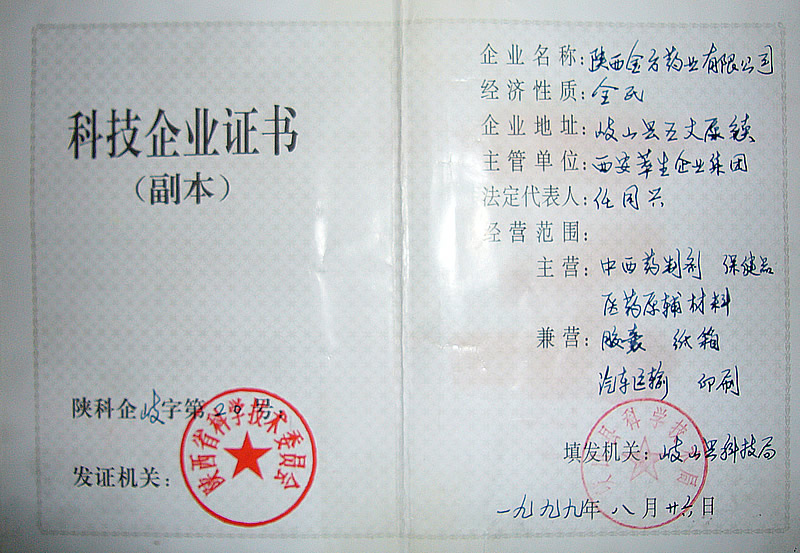 科技企业证书
（副本）
陕科企岐字第20号
陕西省科学技术委员会
发证机关：
企业名称：陕西金方药业有限公司
经济性质：全民
企业地址：岐山县五丈原镇
主管单位：西安華生企业集团
法定代表人：任同兴
经营范围：
主营：中西药制剂 保健品
医药原辅材料
兼营：胶囊 纸箱
汽车运输 印刷
填发机关：岐山县科技局
一九九九年八月廿六日